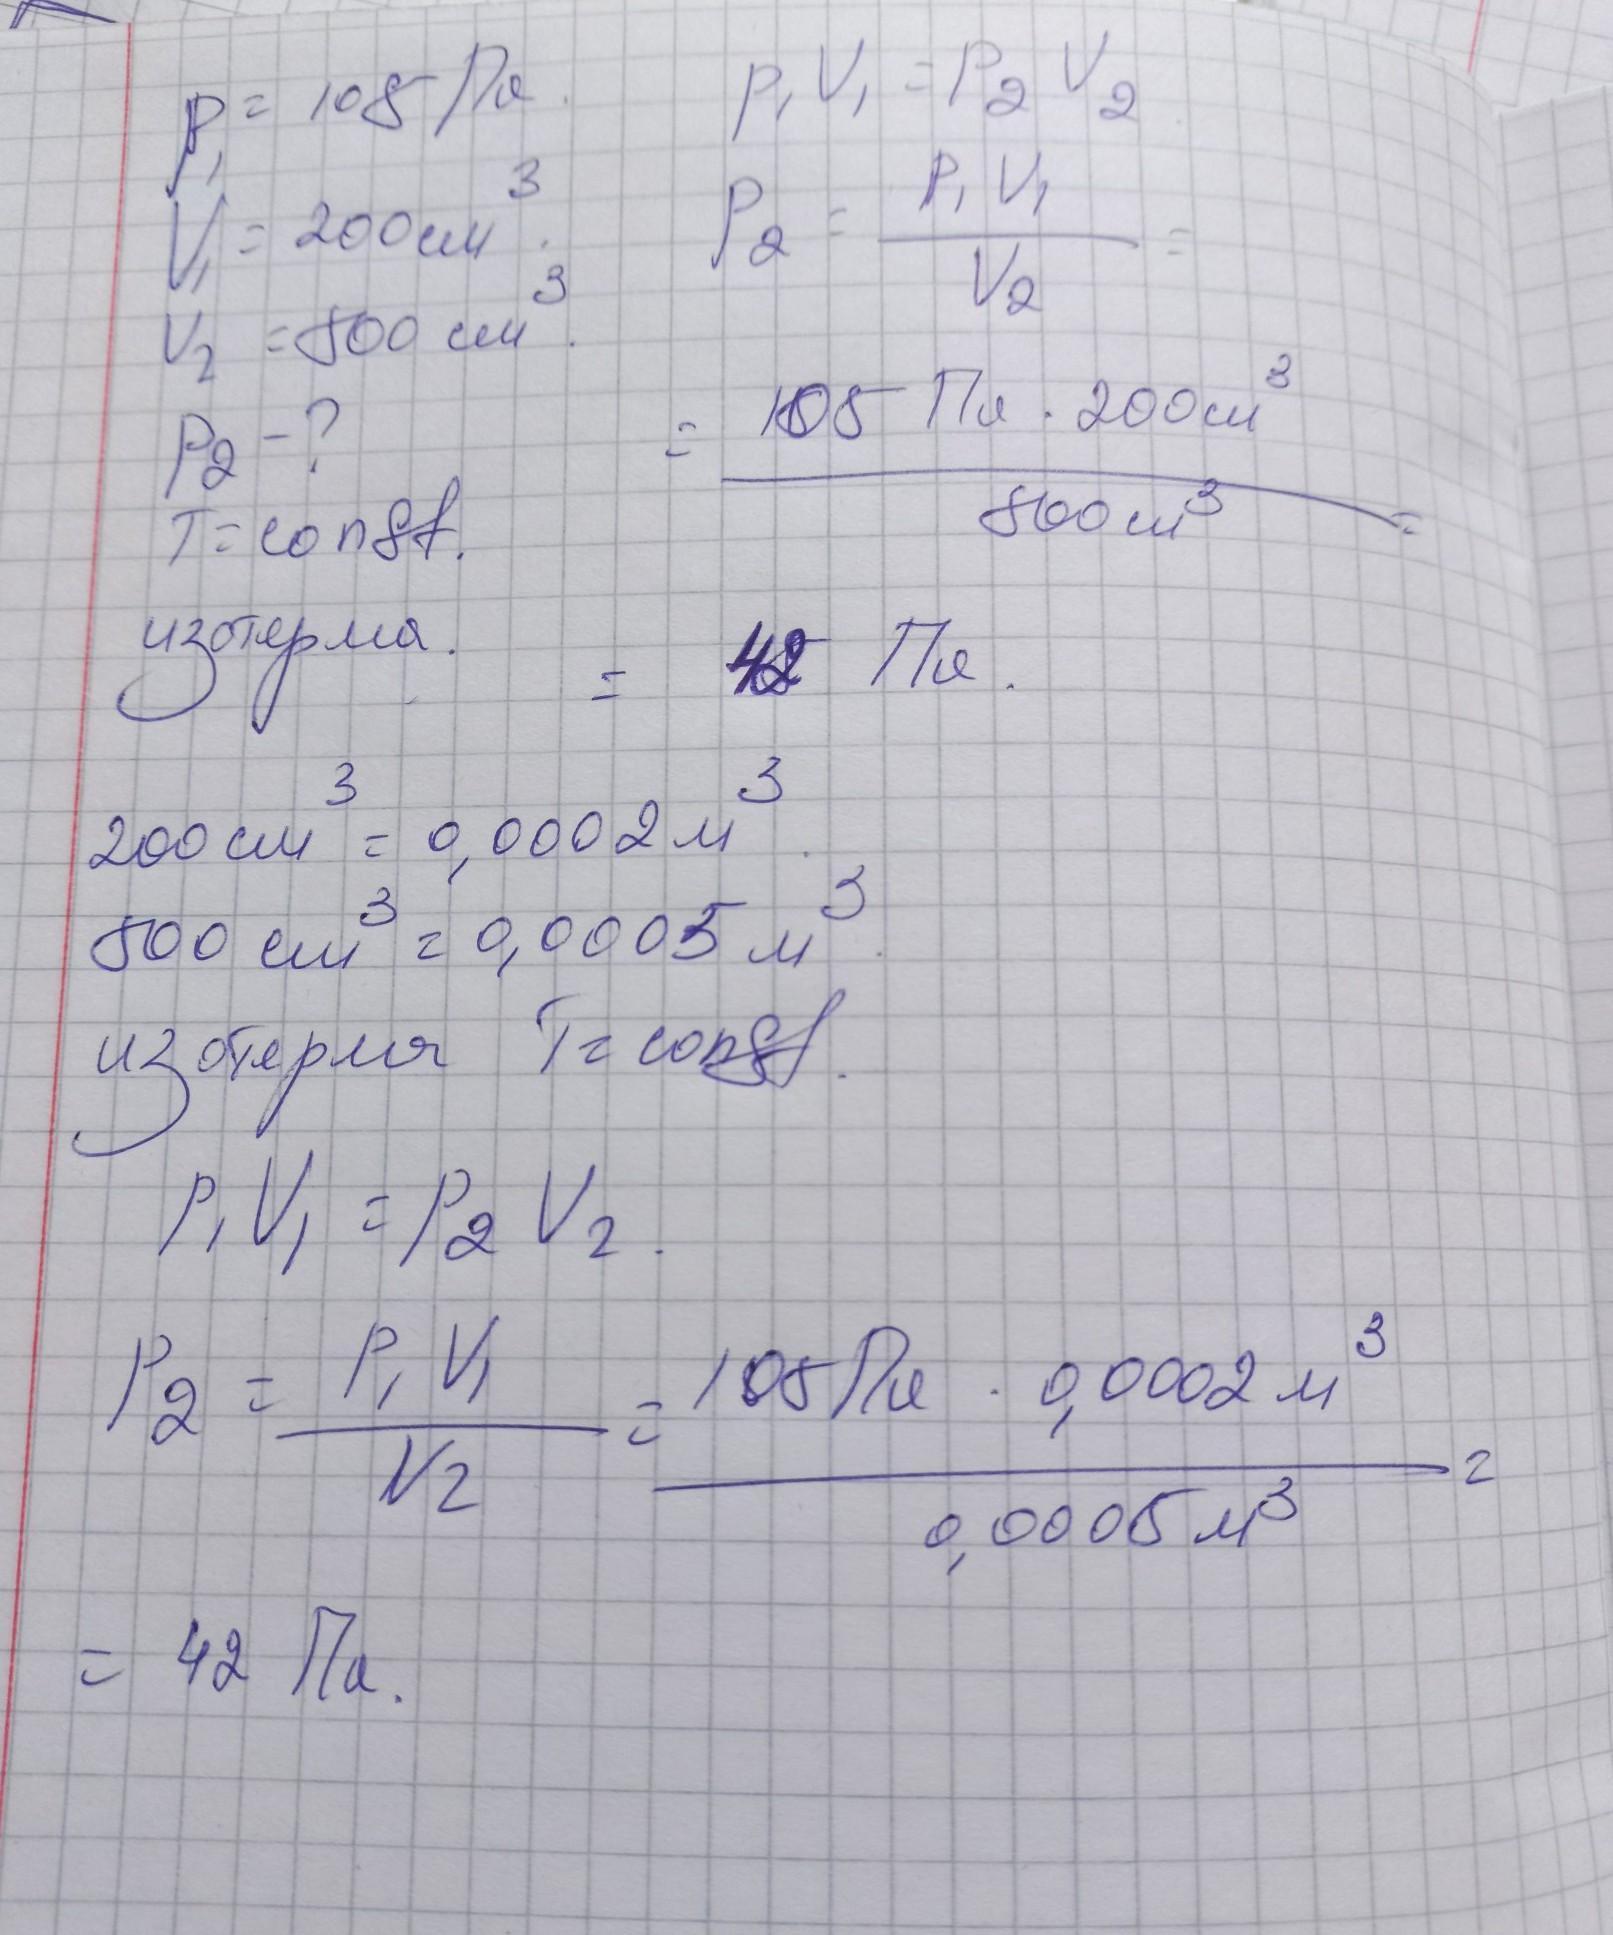 p₁ = 105 Па.
V₁ = 200 см³.
V₂ = 500 см³.
p₂ - ?
T = const.
изотерма.
p₁ V₁ = p₂ V₂
p₂ = p₁ V₁ / V₂ =
= 105 Па · 200 см³ / 500 см³ =
= 42 Па.
200 см³ = 0,0002 м³.
500 см³ = 0,0005 м³.
изотерма T = const.
p₁ V₁ = p₂ V₂.
p₂ = p₁ V₁ / V₂ = 105 Па · 0,0002 м³ / 0,0005 м³ =
= 42 Па.